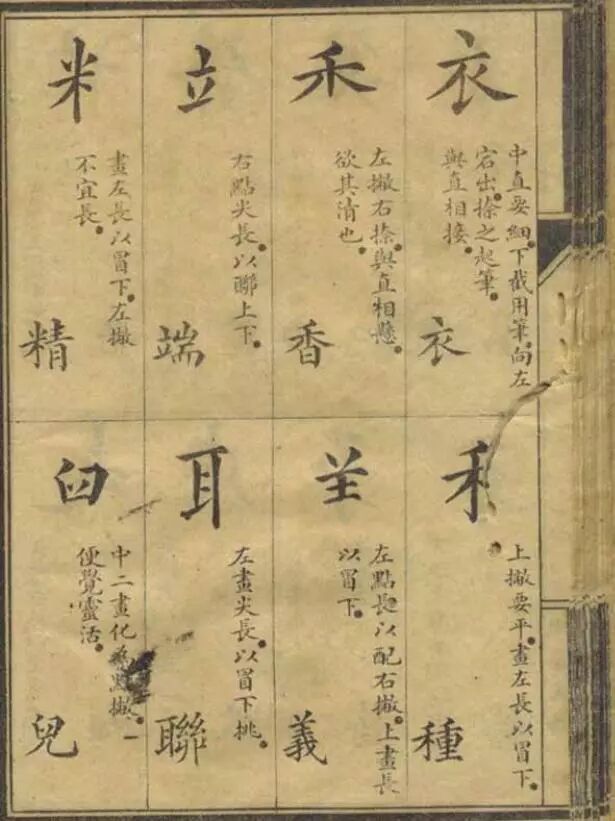 衣
中直要細。下截用筆。向左
宕出。捺之起筆。
與直相接。
衣
禾
左撇右捺。與直相懸。
欲其清也。
香
立
右點尖長。以聯上下。
端
米
畫左長以冒下。左撇
不宜長。
精
禾
上撇要平。畫左長以冒下。
種
𦍌
左點長以配右撇。上畫長
以冒下。
義
耳
左畫尖長。以冒下挑。
聯
臼
中二畫化為點撇。
便覺靈活。
兒